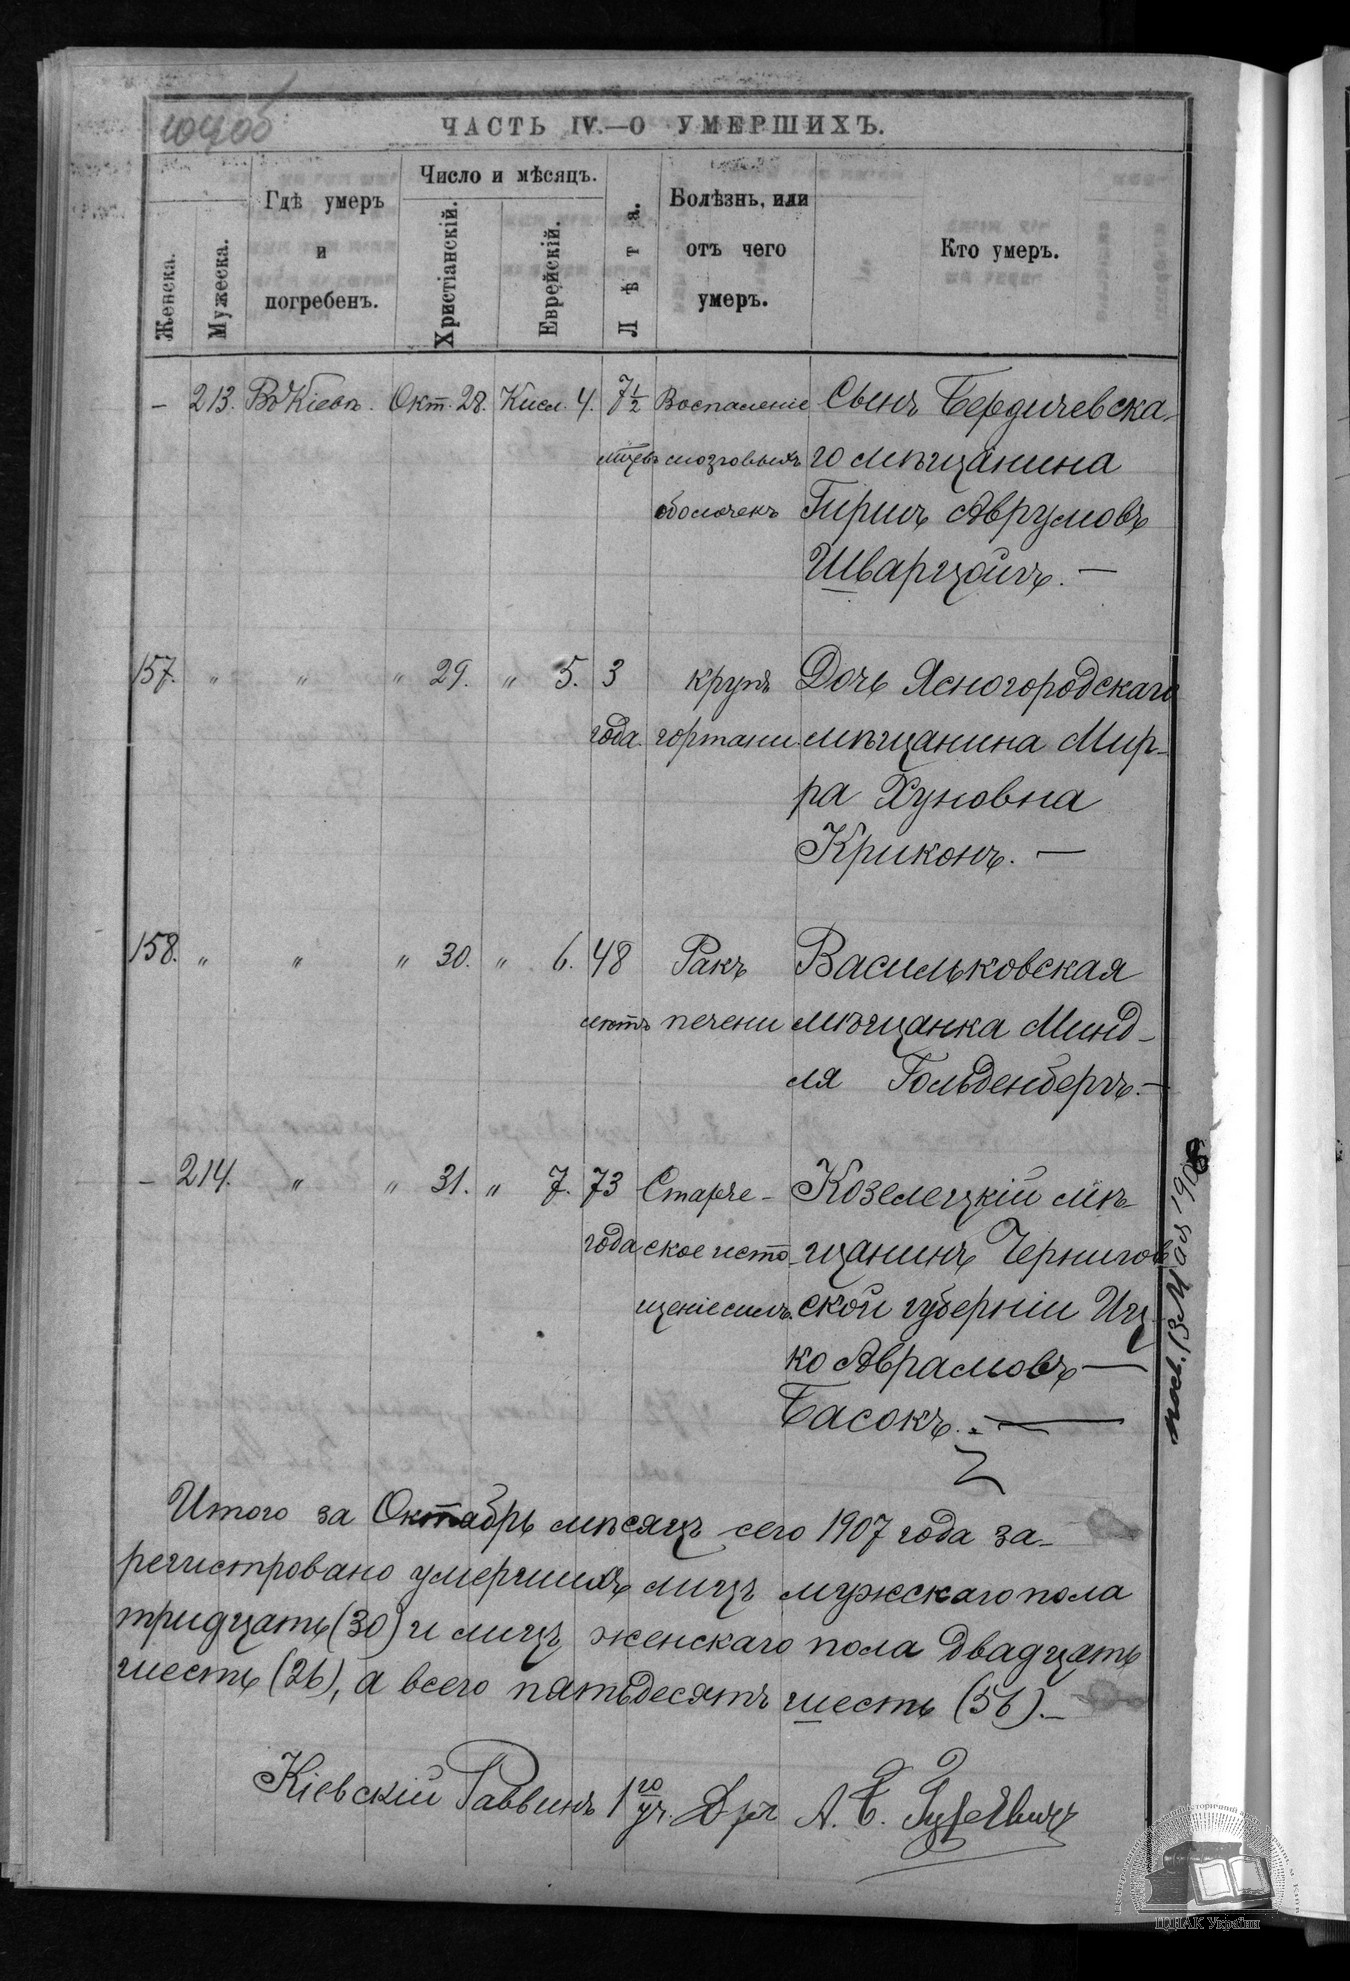 104об
ЧАСТЬ IV.—О УМЕРШИХЪ.
Женска.
Мужеска.
Гдѣ умеръ и погребенъ.
Число и мѣсяцъ.
Христіанскій.
Еврейскій.
Лѣта.
Болѣзнь, или отъ чего умеръ.
Кто умеръ.
— 213. Въ Кіевѣ. Окт. 28. Кисл. 4. 7½ Воспаленіе Сынъ Бердичевска-
мѣсцевъ мозговыхъ го мѣщанина
оболочекъ Гершъ Аврумовъ
Шварцойгъ. —
157. " " " 29. " 5. 3 крупъ Дочь Ясногородскаго
года. гортани мѣщанина Мир-
ра Хуновна
Криконъ. —
158. " " " 30. " 6. 48 Ракъ Васильковская
лѣтъ печени мѣщанка Минд-
ля Гольденбергъ. —
— 214. " " 31. " 7. 73 Старче- Козелецкій мѣ-
года ское исто- щанинъ Чернигов
щеніе силъ. ской губерніи Иц-
ко Аврамовъ —
Басокъ. —
Итого за Октябрь мѣсяцъ сего 1907 года за-
регистровано умершихъ лицъ мужскаго пола
тридцать (30) и лицъ женскаго пола двадцать
шесть (26), а всего пятьдесятъ шесть (56). —
Кіевскій Раввинъ 1го уч. Д-ръ А. Б. Гуревичъ
13 Мая 1908
ЦДІАК України